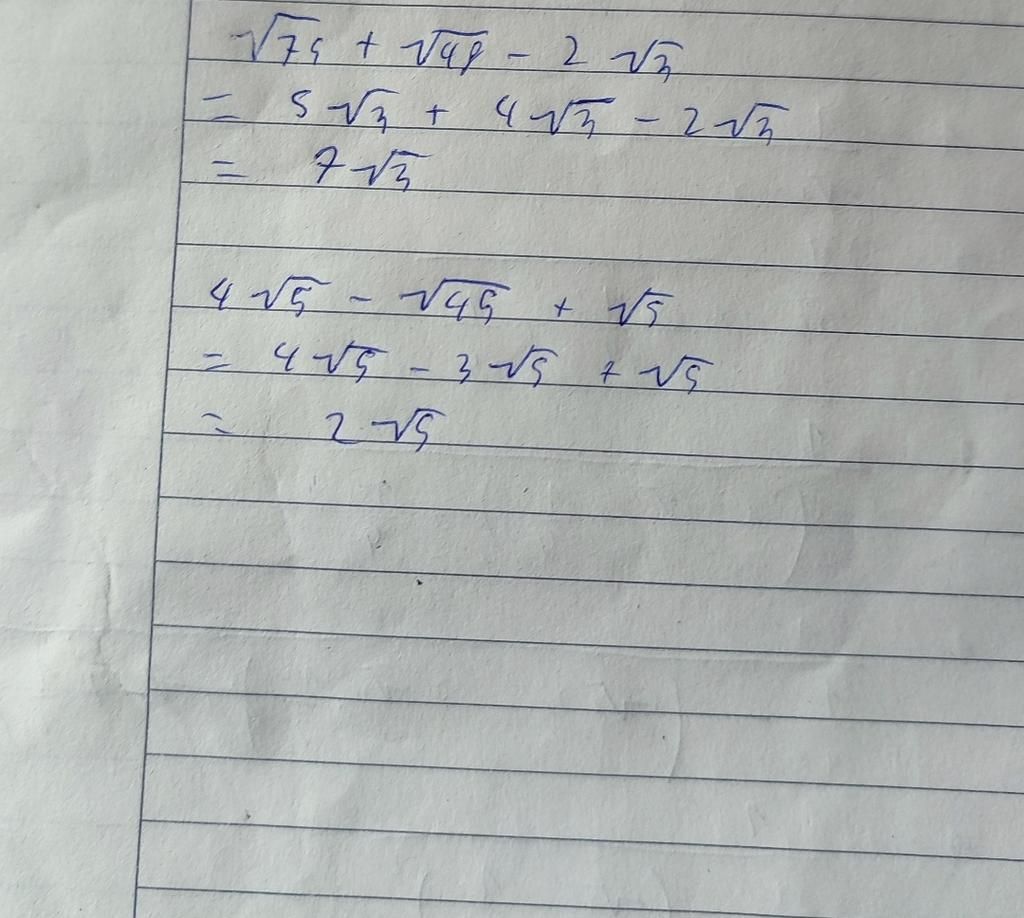 √75 + √48 - 2 √3
= 5 √3 + 4 √3 - 2 √3
= 7 √3
4 √5 - √45 + √5
= 4 √5 - 3 √5 + √5
= 2 √5